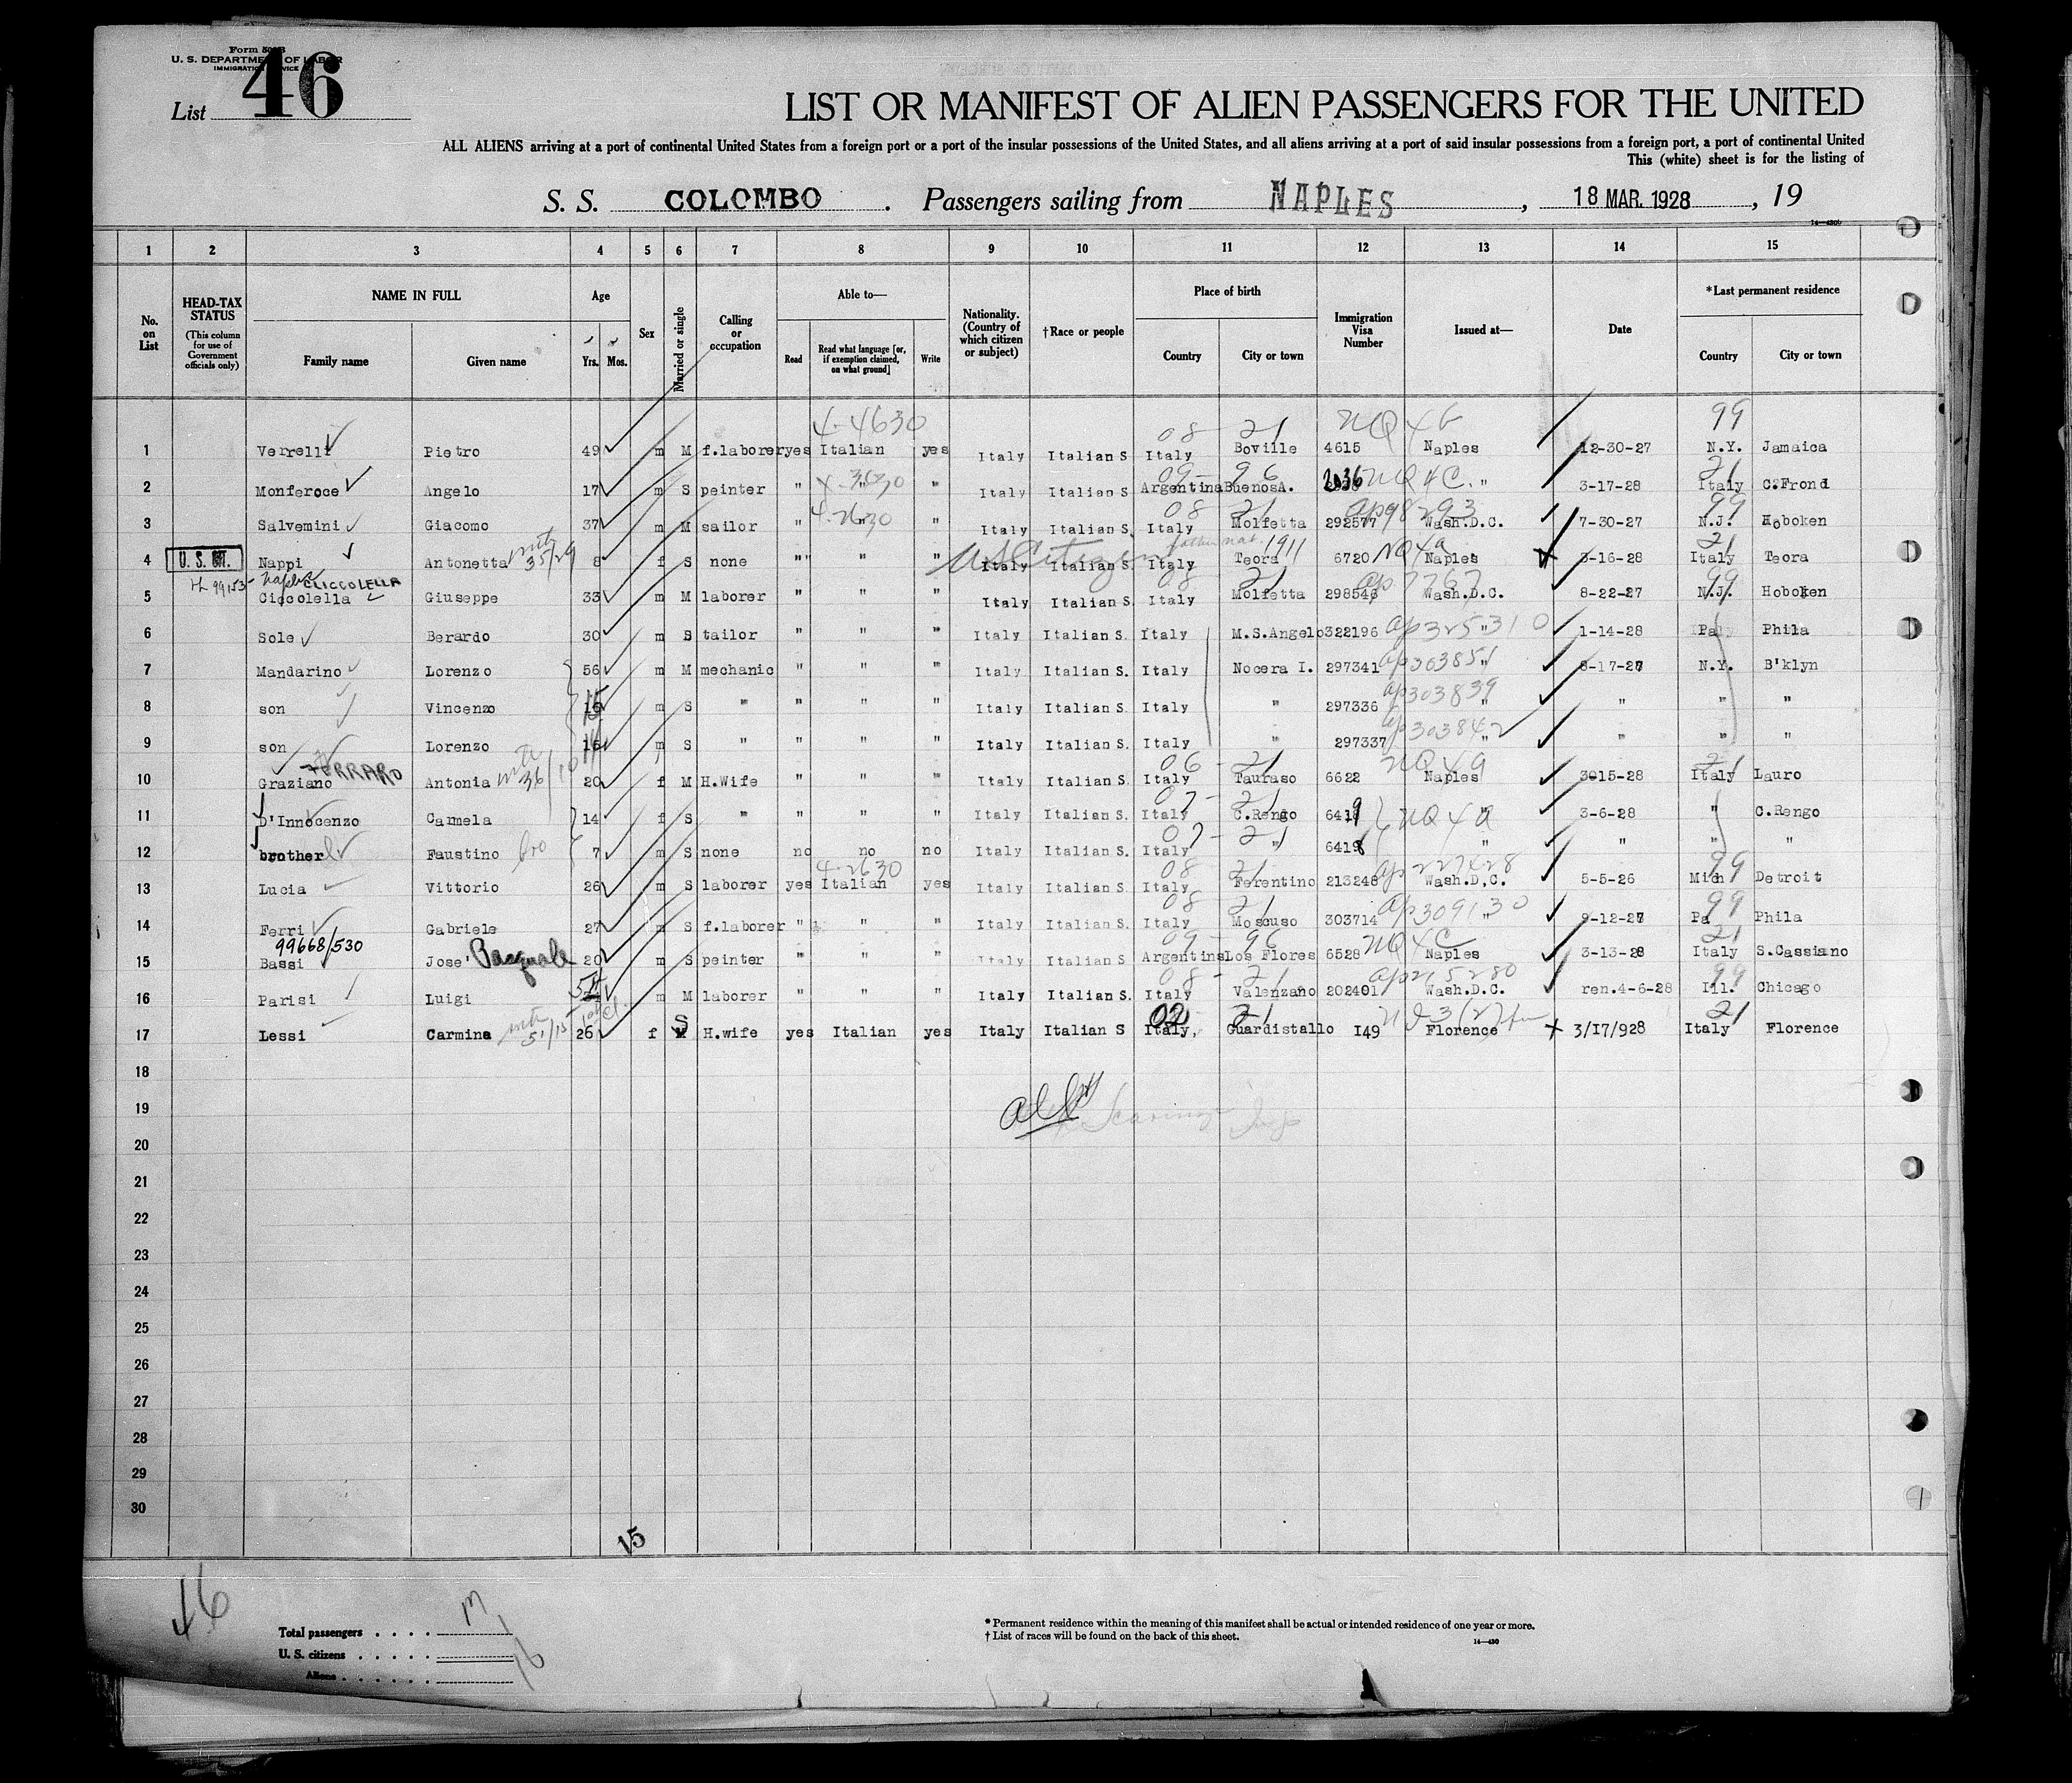 Form 500 B
U. S. DEPARTMENT OF LABOR
IMMIGRATION SERVICE
List 46
LIST OR MANIFEST OF ALIEN PASSENGERS FOR THE UNITED
ALL ALIENS arriving at a port of continental United States from a foreign port or a port of the insular possessions of the United States, and all aliens arriving at a port of said insular possessions from a foreign port, a port of continental United
This (white) sheet is for the listing of
S. S. COLOMBO . Passengers sailing from NAPLES , 18 MAR. 1928 , 19
14—430b
1 2 3 4 5 6 7 8 9 10 11 12 13 14 15
No. on List
HEAD-TAX STATUS (This column for use of Government officials only)
NAME IN FULL Family name Given name
Age Yrs. Mos.
Sex
Married or single
Calling or occupation
Able to— Read Read what language [or, if exemption claimed, on what ground] Write
Nationality. (Country of which citizen or subject)
†Race or people
Place of birth Country City or town
Immigration Visa Number
Issued at—
Date
*Last permanent residence Country City or town
4-4630 08 - 21 NQ 4 99
1 Verrelli Pietro 49 m M f.laborer yes Italian yes Italy Italian S Italy Boville 4615 Naples 12-30-27 N.Y. Jamaica
4-3630 09 - 96 21
2 Monferoce Angelo 17 m S peinter " " " Italy Italian S Argentina BuenosA. 2036 NQ 4C. " 3-17-28 Italy C.Frond
4-2630 08 21 ap98293 99
3 Salvemini Giacomo 37 m M sailor " " " Italy Italian S Italy Molfetta 292577 Wash.D.C. 7-30-27 N.J. Hoboken
US Citizen father nat. 1911 21
4 U. S. CIT. Nappi Antonetta 35/29 8 f S none " " " Italy Italian S. Italy Teora 6720 NQ4a Naples 3-16-28 Italy Teora
99153 Naples CLICCOLELLA 08 21 ap 7767 99
5 Ciccolella Giuseppe 33 m M laborer " " " Italy Italian S. Italy Molfetta 298546 Wash.D.C. 8-22-27 N.J. Hoboken
6 Sole Berardo 30 m S tailor " " " Italy Italian S. Italy M.S.Angelo 322196 ap325310 " 1-14-28 Pa Phila
7 Mandarino Lorenzo 56 m M mechanic " " " Italy Italian S. Italy Nocera I. 297341 ap303851 " 8-17-27 N.Y. B'klyn
8 son Vincenzo 15 m S " " " " Italy Italian S. Italy " 297336 ap303839 " " " "
9 son Lorenzo m S " " " " Italy Italian S. Italy " 297337 ap303842 " " " "
FERRARO 06 - 21 NQ4a 21
10 Graziano Antonia 36/10 20 f M H.Wife " " " Italy Italian S. Italy Tauraso 6622 Naples 3015-28 Italy Lauro
07 - 21
11 D'Innocenzo Carmela 14 f S " " " " Italy Italian S. Italy C.Rengo 6419 NQ4a " 3-6-28 " C.Rengo
07 - 21
12 brother Faustino bro 7 m S none no no no Italy Italian S. Italy " 6418 " " " "
4-2630 08 21 ap 227428 99
13 Lucia Vittorio 26 m S laborer yes Italian yes Italy Italian S. Italy Ferentino 213248 Wash.D.C. 5-5-26 Mich Detroit
08 21 ap309130 99
14 Ferri Gabriele 27 m S f.laborer " " " Italy Italian S. Italy Moscuso 303714 " 9-12-27 Pa Phila
99668/530 09 - 96 NQ4C 21
15 Bassi Jose' Pasquale 20 m S peinter " " " Italy Italian S. Argentina Los Flores 6528 Naples 3-13-28 Italy S.Cassiano
08 - 21 ap215280 99
16 Parisi Luigi 54 m M laborer " " " Italy Italian S. Italy Valenzano 202401 Wash.D.C. ren.4-6-28 Ill. Chicago
02 21 21
17 Lessi Carmina 51/13 26 f S H.wife yes Italian yes Italy Italian S Italy, Guardistallo 149 Florence 3/17/928 Italy Florence
18
19
20
21
22
23
24
25
26
27
28
29
30
15
46
Total passengers . . . . 17
U. S. citizens . . . . . 1
Aliens . . . . . . 16
* Permanent residence within the meaning of this manifest shall be actual or intended residence of one year or more.
† List of races will be found on the back of this sheet.
14—430